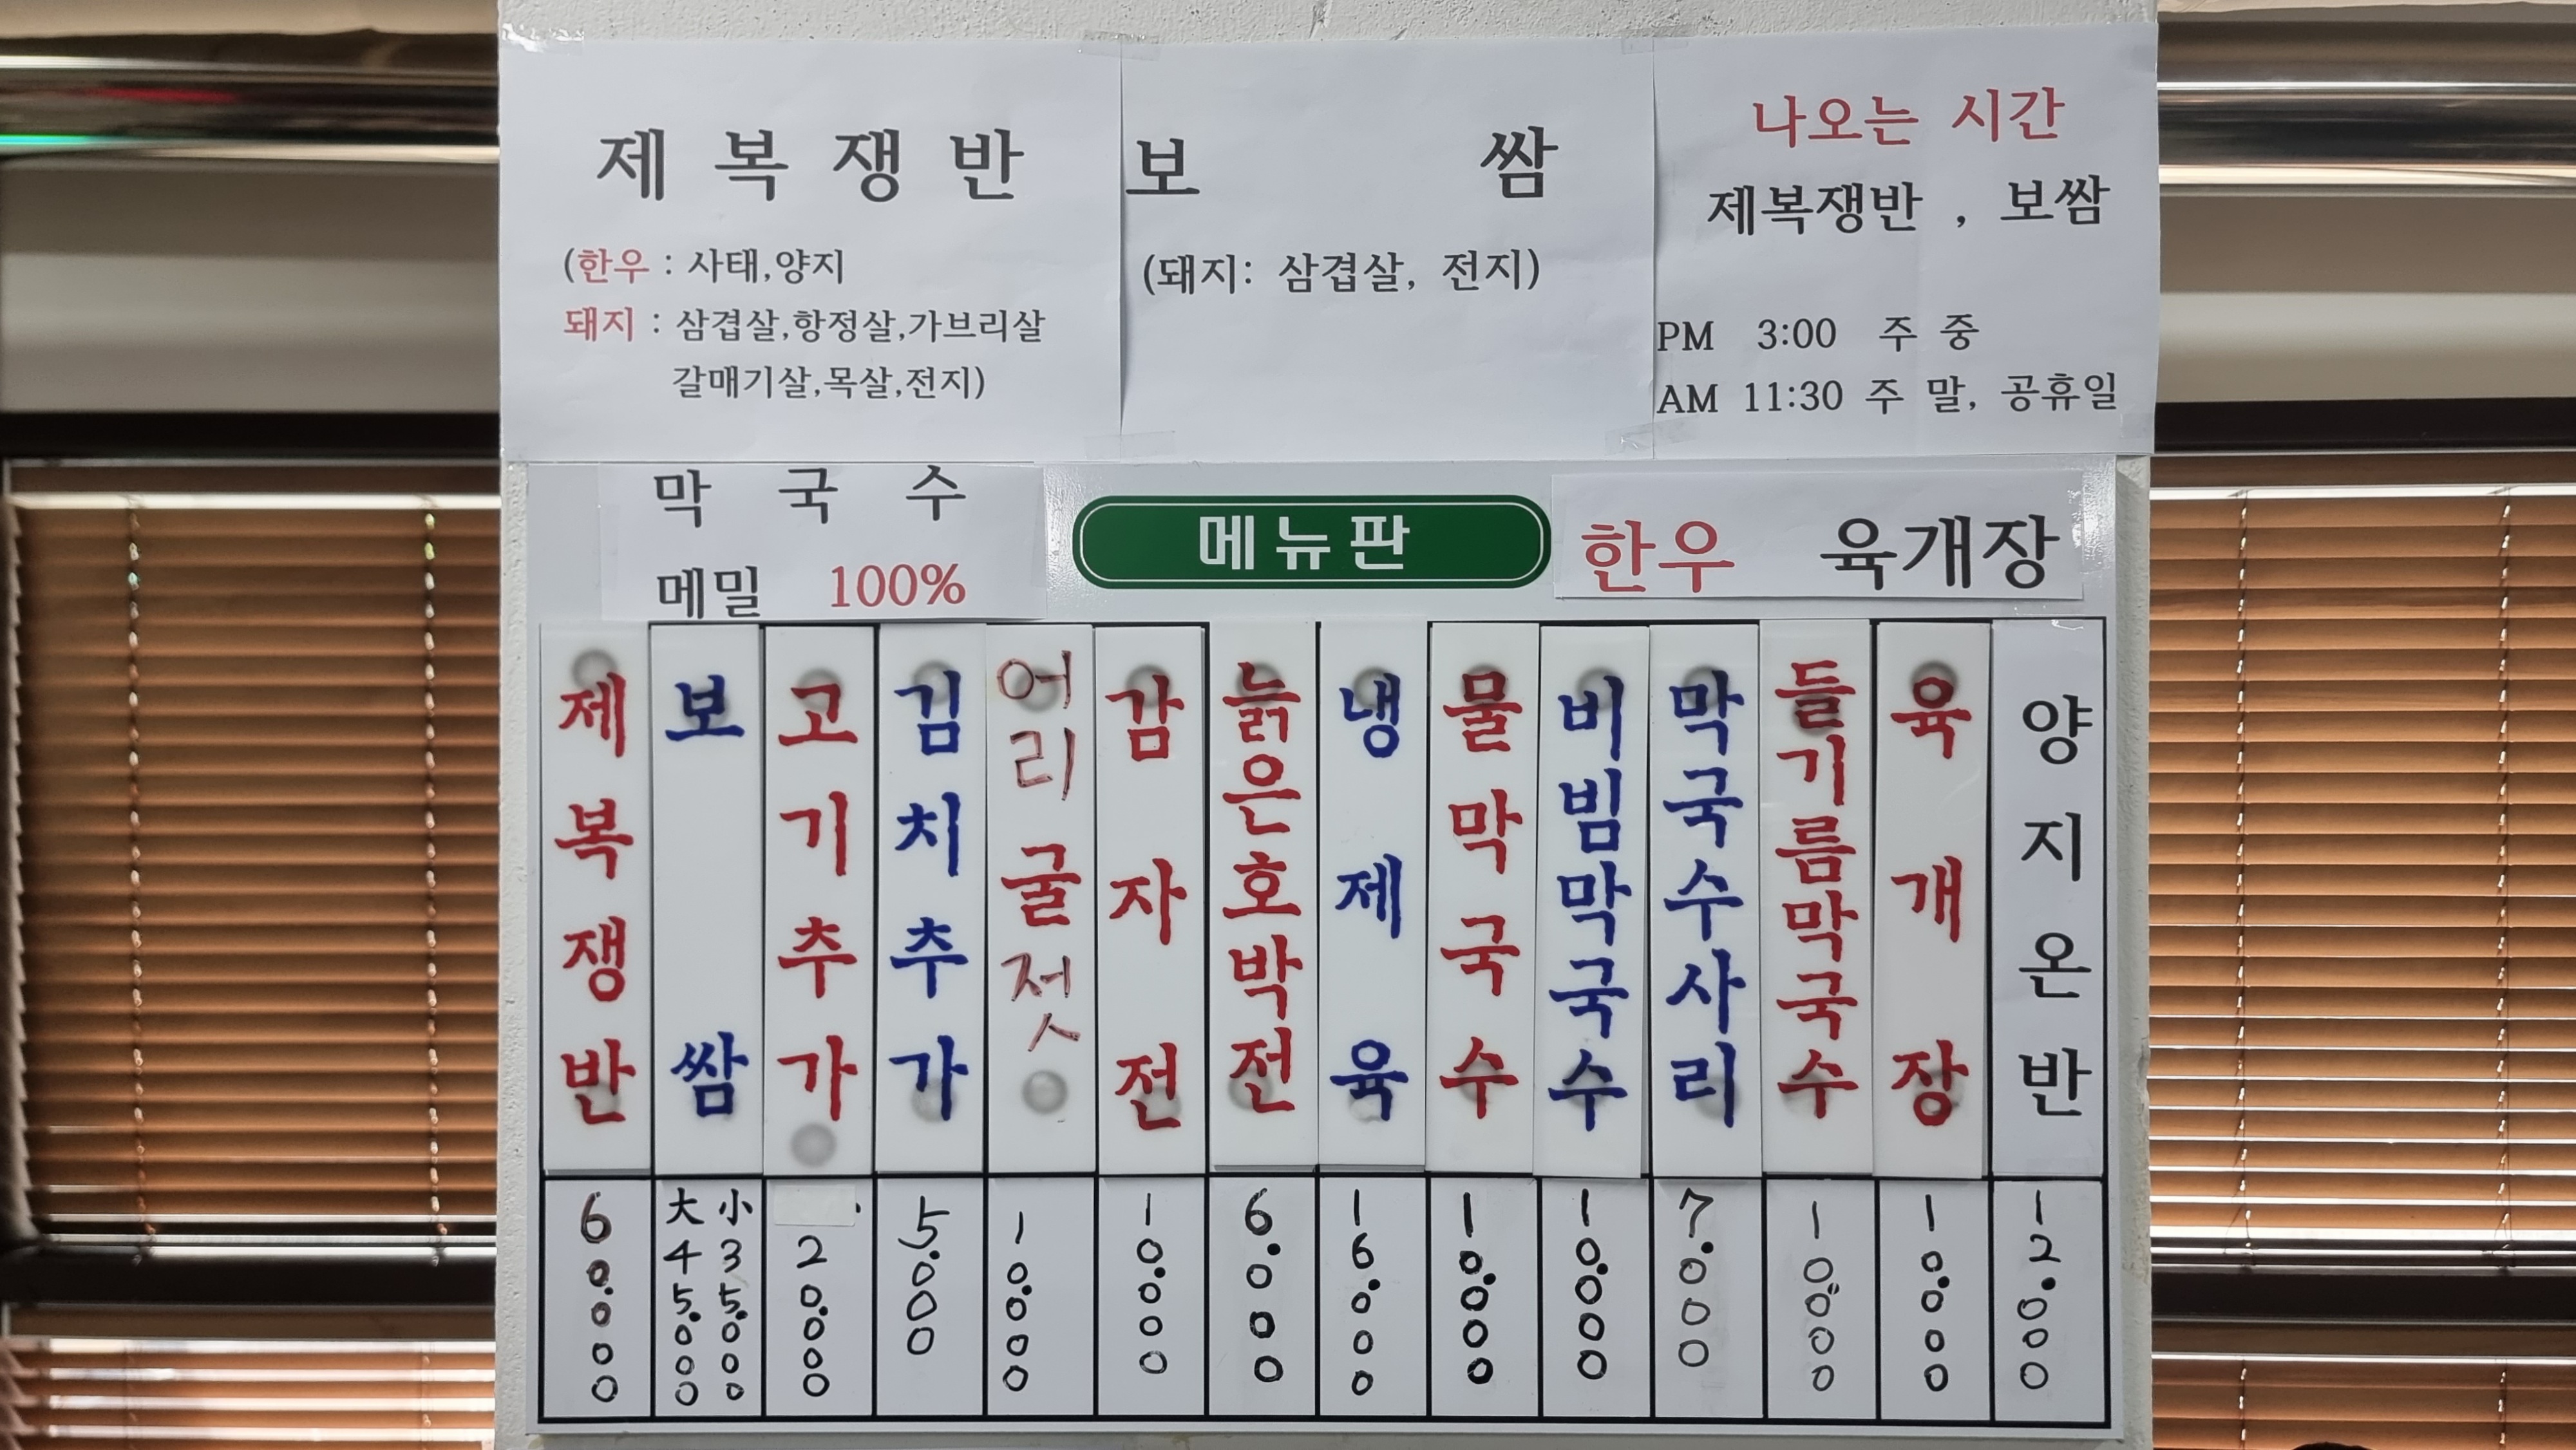 제 복 쟁 반
(한우 : 사태,양지
돼지 : 삼겹살,항정살,가브리살
갈매기살,목살,전지)
보 쌈
(돼지: 삼겹살, 전지)
나오는 시간
제복쟁반 , 보쌈
PM 3:00 주 중
AM 11:30 주 말, 공휴일
막 국 수
메밀 100%
메뉴판
한우 육개장
제복쟁반
60.000
보쌈
大 45.000
小 35.000
고기추가
20.000
김치추가
5.000
어리굴젓
10.000
감자전
10.000
늙은호박전
6.000
냉제육
16.000
물막국수
10.000
비빔막국수
10.000
막국수사리
7.000
들기름막국수
10.000
육개장
10.000
양지온반
12.000